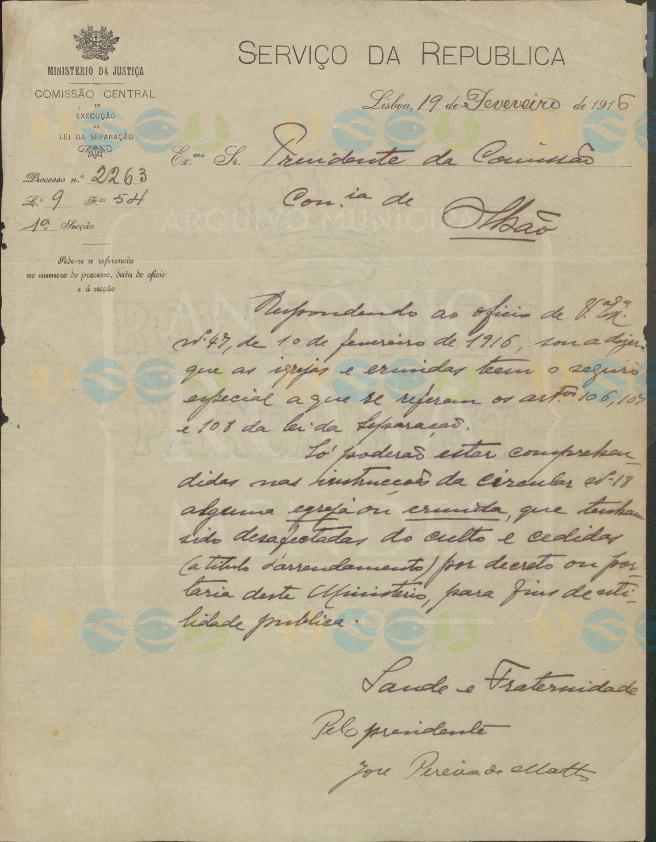 SERVIÇO DA REPUBLICA
MINISTERIO DA JUSTIÇA
COMISSÃO CENTRAL
DE
EXECUÇÃO
DA
LEI DA SEPARAÇÃO
Lisboa, 19 de Fevereiro de 1916
Processo n.º 2263
L.º 9 F.as 54
1ª Secção
Pede-se a referencia
ao numero do processo, data do oficio
e á secção
Ex.mo Sr. Presidente da Comissão
Con.ia de
Olhão
ARQUIVO MUNICIPAL
ANTONIO
Respondendo ao oficio de V.ª Ex.ª
nº 47, de 10 de fevereiro de 1916, sou a dizer
que as igrejas e ermidas teem o seguro
especial a que se referem os art.os 106, 107
e 108 da lei da Separação.
Só poderão estar comprehen-
didas nas instrucções da circular nº 18
alguma egreja ou ermida, que tenham
sido desafectadas do culto e cedidas
(a titulo d'arrendamento) por decreto ou por-
taria deste Ministerio, para fins de uti-
lidade publica.
Saude e Fraternidade
Pelo presidente
José Pereira de Mattos